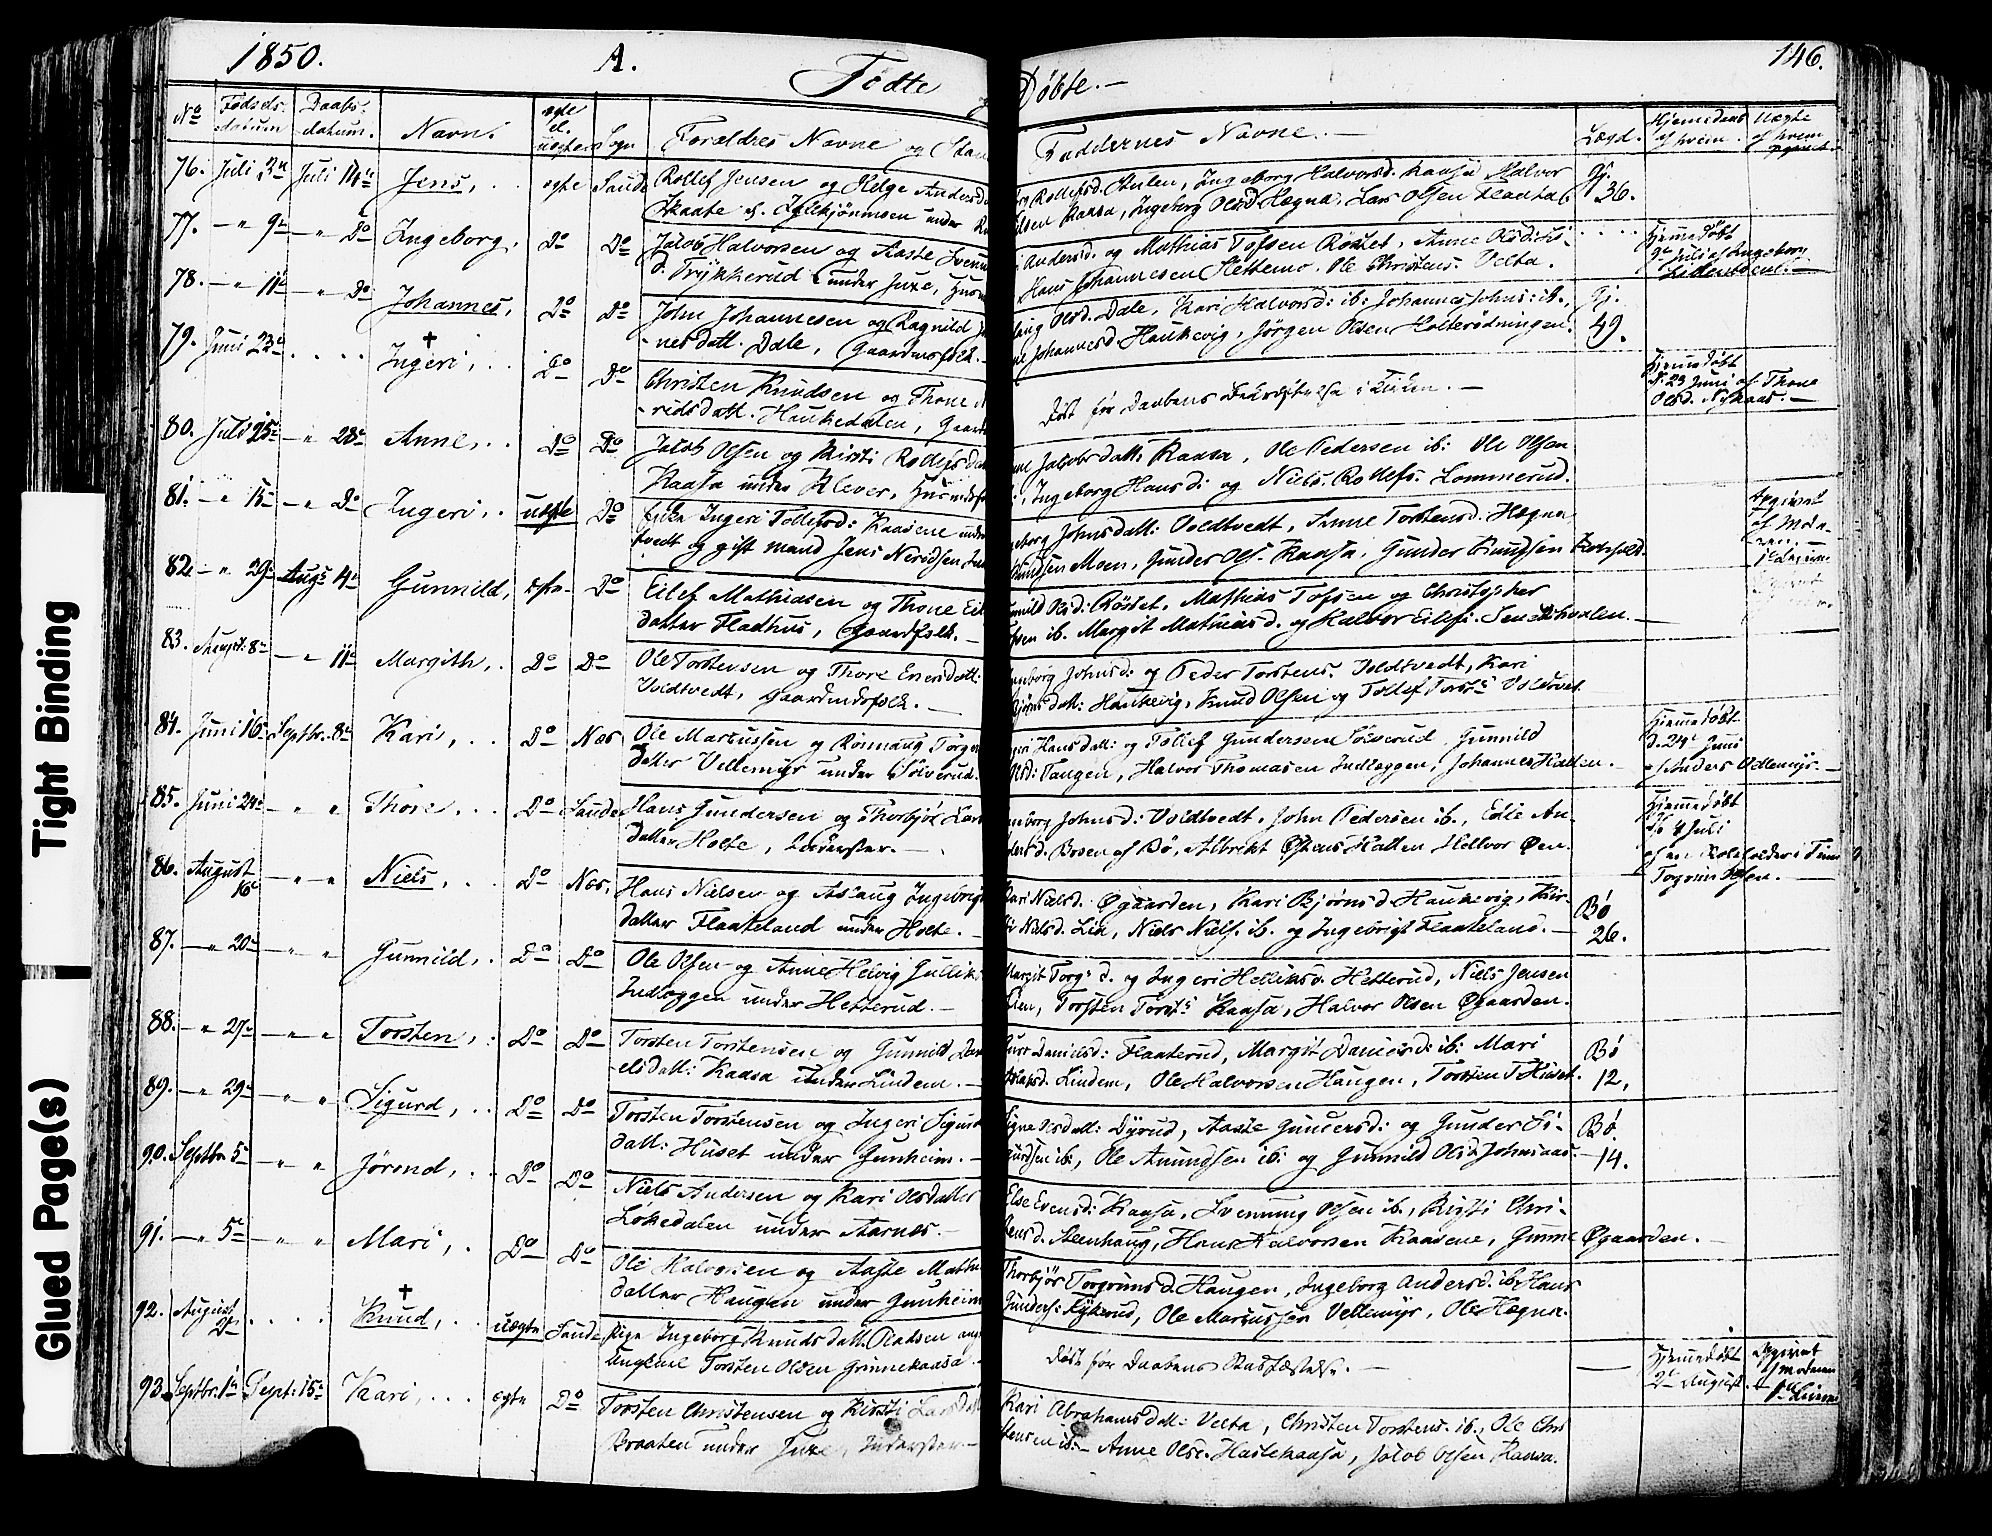 1850. A. Fødte Døbte.— 146.
No Fødsels- datum Daabs- datum. Navn. ægte el. uægte Sogn Forældres Navne og Stan Faddernes Navne.— Lægd. Hjemedøbt af hvem. Uægte af hvem
76. Juli 3n Juli 14n Jens, ægte Sande Rollef Jensen og Helge Andersd
Rollefsd. Ingeborg Halvorsd. Kaasa Halvor Gj.
Kaasa, Ingeborg Olsd. Hægna, Lars Olsen Flaata 36.
77. — " 9n — " Do Ingeborg, Do Do Jakob Halvorsen og Aaste
d. Trykkerud under Juxe,
Andersd. og Mathias Tofsen Røstet, Anne
Hans Johannesen Slettemo, Ole Christens. Velta.
Hjemedøbt
9n Juli af Ingeborg
78. — " 11n — " Do Johannes, Do Do John Johannesen og Ragnild
nesdatt. Dale, Gaardmfolk.
Olsd. Dale, Kari Halvorsd: ib: Johannes Johns: ib., Gj.
Johannesd Haukevig, Jørgen Olsen Holterødningen. 49.
79. Juni 23n . . . . † Ingeri, . . Do Do Christen Knudsen og Thone
ridsdatt. Haukedalen, Gaard
Død før Daabens Bekræftelse i Kirken.—
Hjemedøbt
d. 23 Juni af Thone
Olsd. Nykaas.—
80. Juli 25n — " 28n Anne, . . Do Do Jacob Olsen og Kirsti Rollefsdat
Kaasa under Klever, Husmdsf
Jakobsdatt: Kaasa, Ole Pedersen ib: Ole Olsen
Ingeborg Hansd: og Niels Rollefs. Lommerud.
81. — " 15n — " Do Ingeri, . . uægte Do Enken Ingeri Tollefsd: Kaasene under
tvedt og gift mand Jens
Johnsdatt: Voldtvedt, Anne Torstensd. Hægna
Knudsen Moen, Gunder Ols. Kaasa, Gunder Knudsen
Angivet
af Mod-
eren.—
82. — " 29n Augs 4n Gunnild, ægte Do Eilef Mathiasen og Thone Eil
datter Fladhus, Gaardfolk.—
Olsd: Røstet, Mathias Tofsen og Christopher
ib. Margit Mathiasd. og Halvor Eilefs.
83. August 8n — " 11n Margith, . Do Do Ole Torstensen og Thore Eversdatt:
Voldtvedt, Gaardmdsfolk.—
Johnsd: og Peder Torstens. Voldtvedt, Kari
datt: Haukevig, Knud Olsen og Tollef Torsts Voldtvet
84. Juni 16n Septbr. 8n Kari, . . Do Næs Ole Marcussen og Rønnaug Torger
datter Vellemyr under Sølverud.
Hansdatt: og Tollef Gundersen Sølverud Gunnild
Olsd: Taugen, Halvor Thomasen Indlæggen, Johannes Hatten.
Hjemmedøbt
d. 24n Juni
af Anders Vellemyr.—
85. Juni 24n — " " Thore, . . Do Sande Hans Gundersen og Thorbjør Lars
datter Holte, Inderster.—
Johnsd: Voldtvedt, John Pedersen ib., Edle An-
dersd. Bosen af Bø, Albrikt Østens Hatten Hellvor Øen.
Hjemmedøbt
d. 4 Juli
af en Kolsholder i Sem
Torgrim Olsen.—
86. August 16n — " " Niels, . Do Næs. Hans Nielsen og Aslaug Ingebrigt
datter Flaateland under Holte.—
Kari Nielsd: Øgaarden, Kari Bjørnsd Haukevig, Kir- Bø
sti Nielsd. Lia, Niels Niels. ib. og Ingebrigt Flaateland.— 26.
87. — " 20n — " " Gunnild, . Do Do Ole Olsen og Anne Helvig Gulliks
Indlæggen under Hetterud.—
Margit Torgs d. og Ingeri Helliksd. Hetterud, Niels Jensen
Torsten Torsts Kaasa, Halvor Olsen Øgaarden.
88. — " 27n — " " Torsten, . Do Do Torsten Torstensen og Gunnild Dan
elsdatt: Kaasa under Lindem.—
Guro Danielsd: Flaaterud, Margit Danielsd: ib: Mari Bø
Lindem, Ole Halvorsen Haugen, Torsten T. Huset. 12,
89. — " 29n — " " Sigurd, . Do Do Torsten Torstensen og Ingeri Sigurd
datt: Huset under Gunheim.—
Signe Olsdatt: Dyrud, Aaste Gundersd: og Gunder Si- Bø
gurdsen ib:, Ole Amundsen ib: og Gunnild Olsd. Johnsaas 14.
90. Septbr. 5n — " " Jørond, . . Do Do Niels Andersen og Kari Olsdatter
Løkedalen under Aarnes.—
Else Evensd: Kaasa, Svennung Olsen ib., Kirsti Chri-
stensd. Steenhaug, Hans Halvorsen Kaasene, Gunne Øgaarden.—
91. — " 5n — " " Mari, . Do Do Ole Halvorsen og Aaste Math
datter Haugen under Gunheim
Thorbjør Torgrimsd. Haugen, Ingeborg Andersd. ib. Hans
Gunders: Rykerud, Ole Marcussen Vellemyr, Ole Hægna.
92. August 2n . . . . † Knud, . . uægte Sande Pige Ingeborg Knudsdatt. Oladsen ang
Ungkarl Torsten Olsen Grinnekaasa.
Død før Daabens Stadfæstelse.—
Hjemmedøbt
2n August.
Angivet
af moderen
93. Septbr. 1n Sept: 15n Kari, . . . ægte Do Torsten Christensen og Kirsti Larsdatt
Braaten under Juxe, Inderster—
Kari Abrahamsdatt: Velta, Christen Torstens. ib., Ole Chri
stensen ib:— Anne Olsd. Haslekaasa, Jacob Olsen Kaasa.
Tight Binding
Glued Page(s)